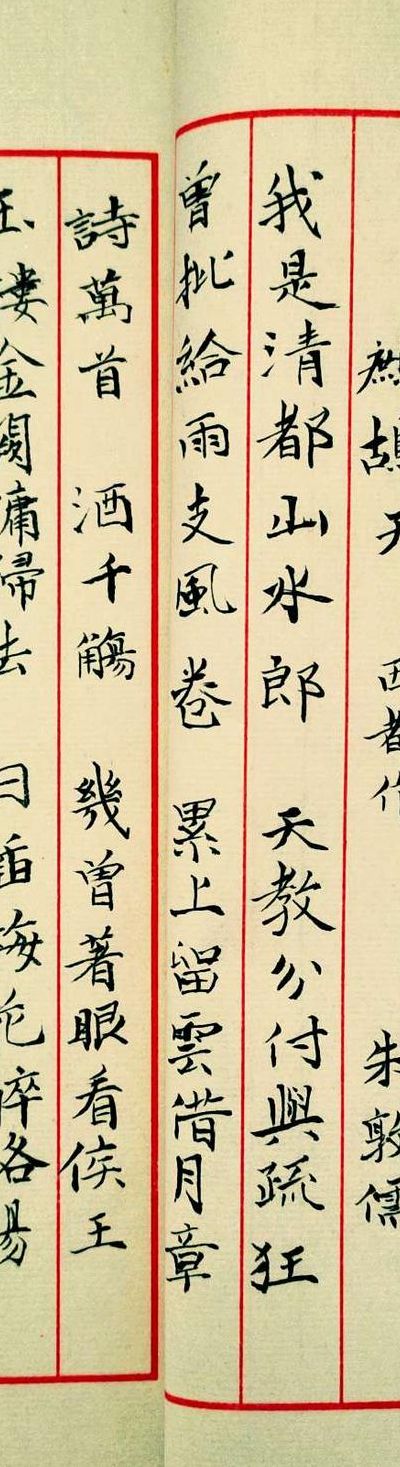 天 西都作 朱敦儒
我是清都山水郎 天教分付與疏狂
曾批給雨支風卷 累上留雲借月章
詩萬首 酒千觴 幾曾著眼看侯王
玉樓金闕慵歸去 且插梅花醉洛陽